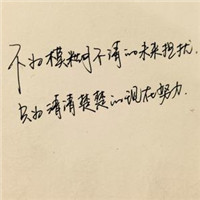 不为模糊不清的未来担忧.
只为清清楚楚的现在努力.